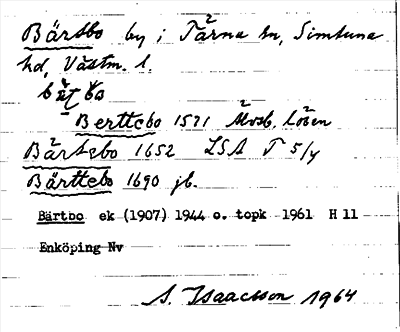 Bärtbo by i Tärna sn, Simtuna
hd, Västm. l.
Berttebo 1571 Älvsb. lösen
Bärtebo 1652 LSA T 5/4
Bärttebo 1690 jb.
Bärtbo ek (1907) 1944 o. topk 1961 H 11
Enköping Nv
S. Isaacsson 1964